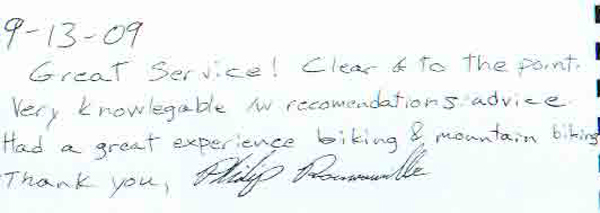 9-13-09
Great Service! Clear & to the point.
Very knowlegable /w recomendations advice.
Had a great experience biking & mountain biking
Thank you, Philip